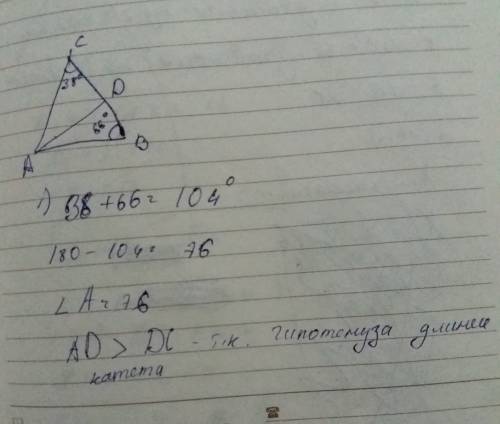 C
38°
D
66°
A
B
1) 38+66= 104°
180-104= 76
∠A=76
AD > DC - т.к. гипотенуза длинее
катета